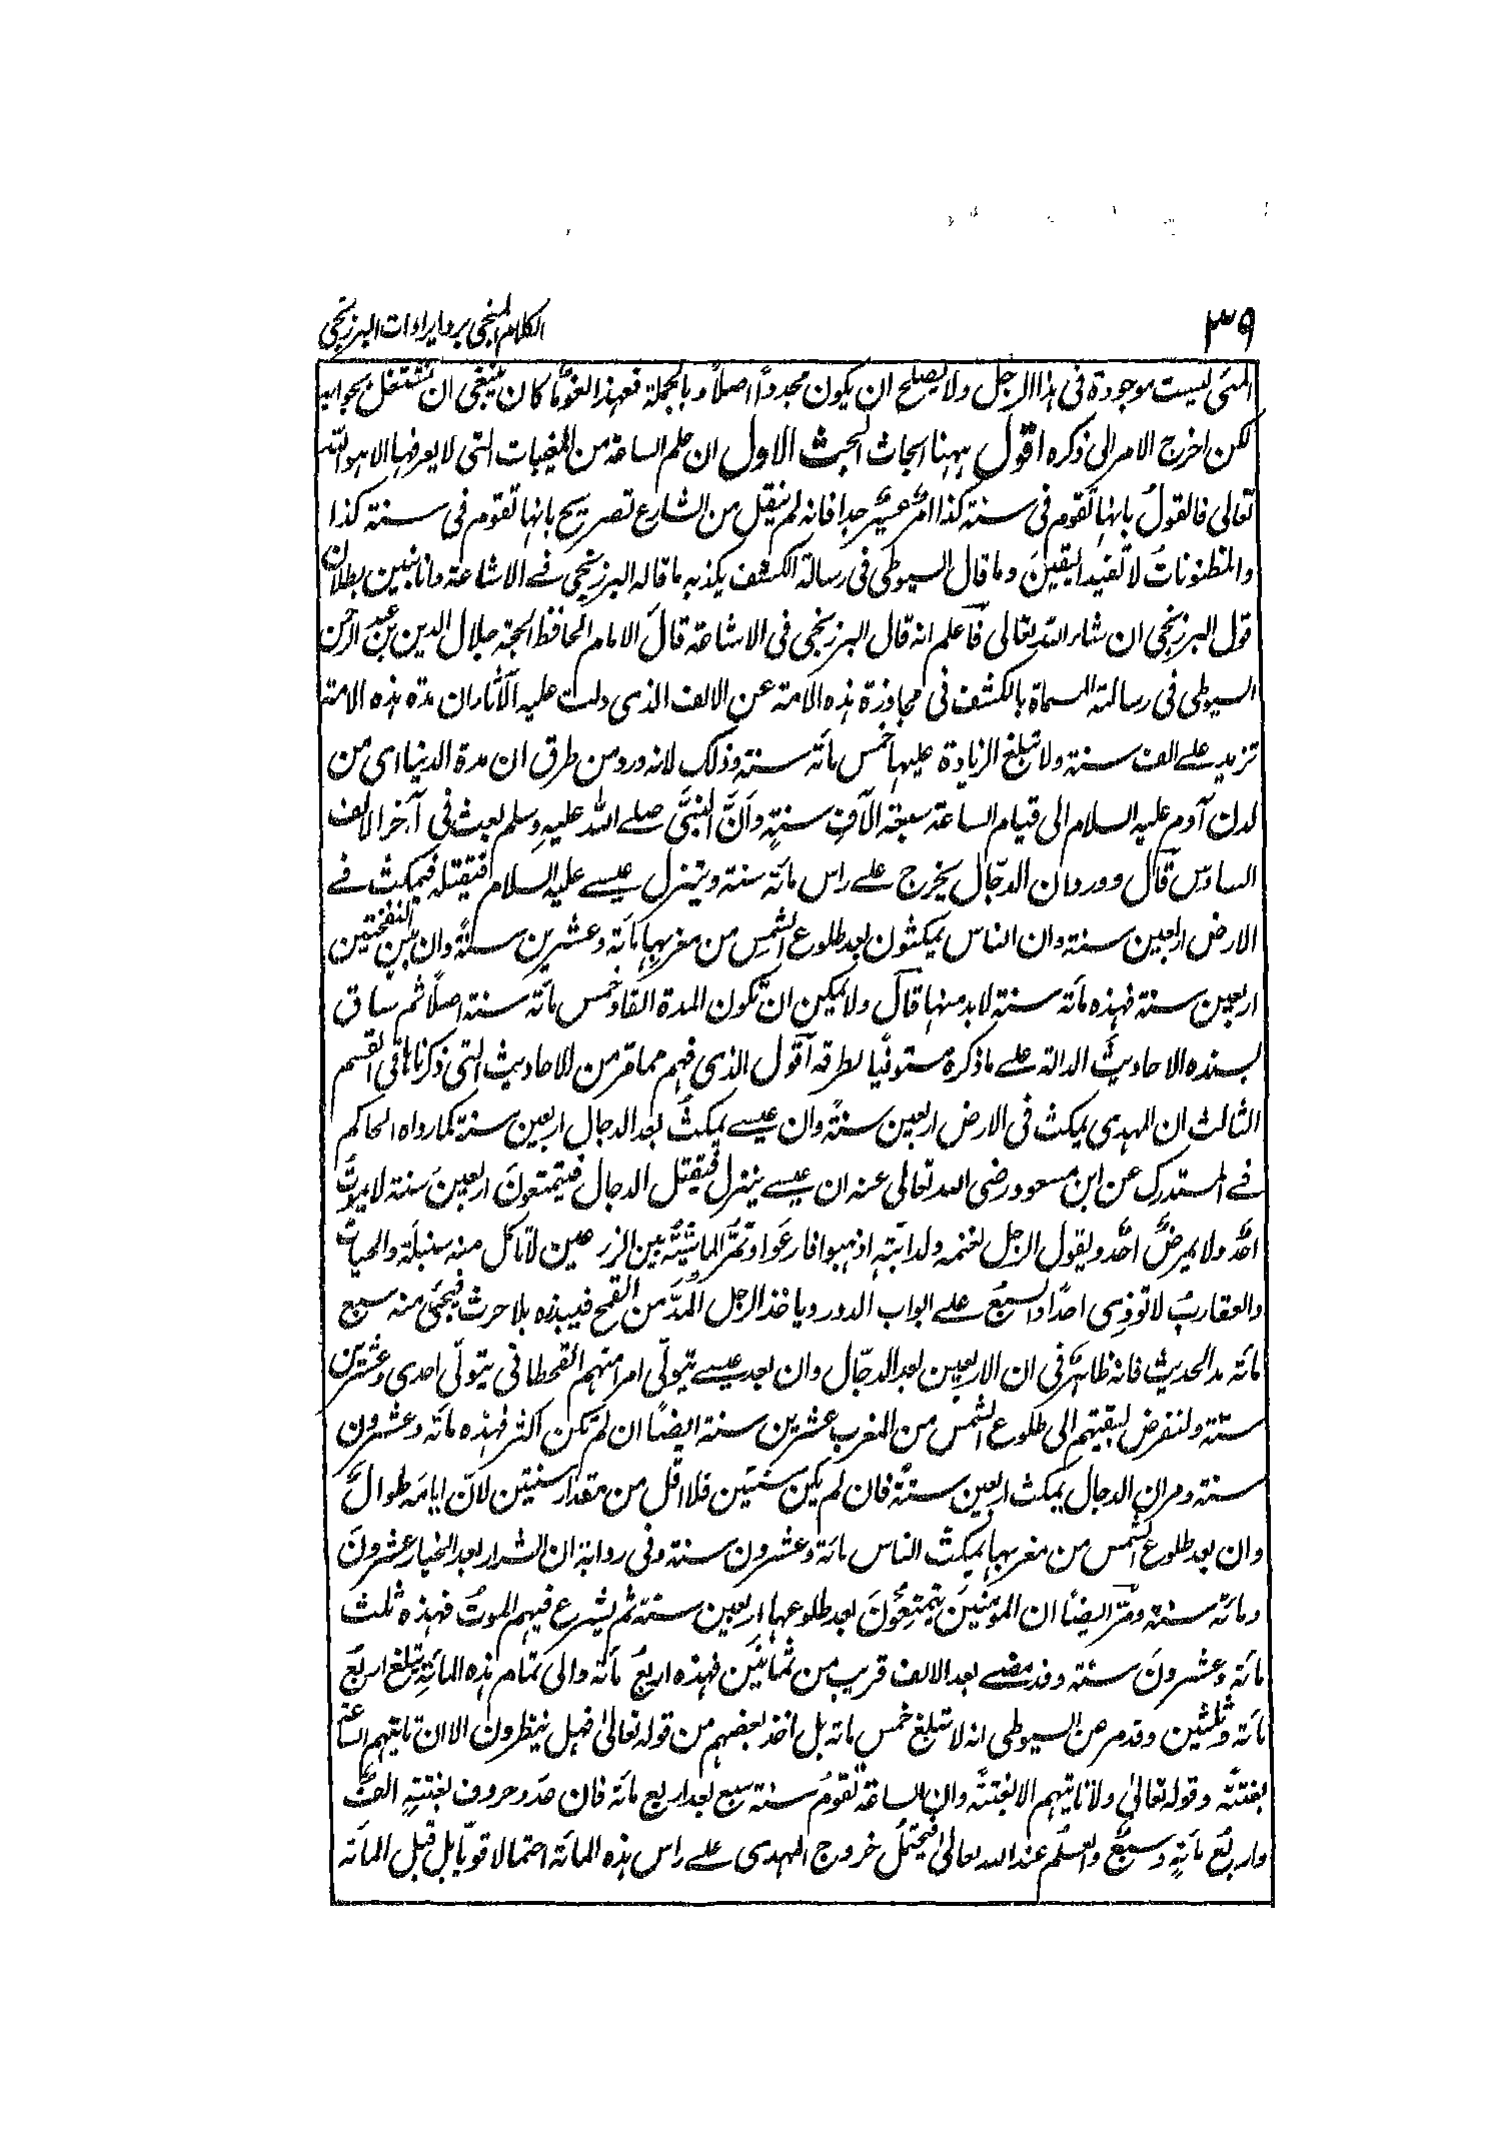 ٣٩
الكلام المنجي برد ايرادات البرزنجي
المئى ليست موجودة فى هذا الرجل ولا يصلح ان يكون مجددًا اصلًا وبالجملة فهذا لغوٌ ما كان ينبغى ان نشتغل بجوابه
لكن اخرج الامر الى ذكره اقول ههنا ابحاث البحث الاول ان علم الساعة من المغيبات التى لا يعرفها الا هو الله
تعالى فالقولُ بانها تقوم فى سنة كذا امرٌ عسيرٌ جدا فانه لم ينقل من الشارع تصريح بانها تقوم فى سنة كذا
والمظنونات لا تفيد اليقينَ وما قال السيوطى فى رسالة الكشف يكذبه ما قاله البرزنجى فے الاشاعة وانا نبين بطلان
قول البرزنجى ان شاء الله تعالى فاعلم انه قال البرزنجى فى الاشاعة قال الامام الحافظ الحجة جلال الدين بن عبد الرحمن
السيوطى فى رسالته المسماة بالكشف فى مجاوزة هذه الامة عن الالف الذى دلت عليه الآثار ان مدة هذه الامة
تزيد علے الف سنة ولا تبلغ الزيادة عليها خمس مائة سنة وذلك لانه ورد من طرق ان مدة الدنيا اى من
لدن آدم عليه السلام الى قيام الساعة سبعة الآف سنةٍ وانَّ النبىَّ صلے الله عليهِ وسلم بعث فى آخر الالف
السادس قال وورد ان الدجّال يخرج علے راس مائة سنة وينزل عيسے عليه السلام فيقتله فيمكث فے
الارض اربعين سنة وان الناس يمكثون بعد طلوع الشمس من مغربها مائة وعشرين سنةً وان بين النفختين
اربعين سنة فهذه مائة سنةٍ لابد منها قال ولا يمكن ان تكون المدة الفا وخمس مائة سنة اصلًا ثم ساق
بسنده الاحاديث الدالة علے ما ذكره مستوفيًا لطرقه اقول الذى فهم مما مر من الاحاديث التى ذكرناها فى القسم
الثالث ان المهدى يمكث فى الارض اربعين سنةً وان عيسے يمكث بعد الدجال اربعين سنة كما رواه الحاكم
فے المستدرك عن ابن مسعود رضى الله تعالى عنه ان عيسے ينزل فيقتل الدجال فيتمتعونَ اربعينَ سنة لا يموتُ
احدٌ ولا يمرضُ احدٌ ويقول الرجل لغنمه ولدابته اذهبوا فارعوا وتمرُّ الماشيةُ بين الزرعين لا تاكل منه سنبلة والحياتُ
والعقاربُ لا توذى احدًا والسبعُ علے ابواب الدور وياخذ الرجل المدَّ من القمح فيبذره بلا حرث فيجئى منه سبع
مائة مد الحديث فانه ظاهرٌ فى ان الاربعين بعد الدجّال وان بعد عيسے يتولّى امرا منهم القحطانى يتولّى احدى وعشرين
سنة ولنفرض لبقيتهم الى طلوع الشمس من المغرب عشرين سنة ايضًا ان لم تكن اكثر فهذه مائة وعشرون
سنة ومر ان الدجال يمكث اربعين سنةً فان لم يكن سنتين فلا اقل من مقدار سنتين لانّ ايامه طوالٌ
وان بعد طلوع الشمس من مغربها يمكث الناس مائة وعشرون سنة وفى رواية ان الشرار بعد الخيار عشرونَ
ومائة سنة ومرّ ايضًا ان المؤمنينَ يتمتعونَ بعد طلوعها اربعين سنة ثم يشرع فيهم الموتُ فهذه ثلث
مائة وعشرونَ سنة وقد مضے بعد الالف قريب من ثمانين فهذه اربع مائة والى تمام هذه المائةِ تبلغ اربعَ
مائة وثلثين وقد مر عن السيوطى انه لا تبلغ خمس مائة بل اخذ بعضهم من قوله تعالىٰ فهل ينظرون الا ان تاتيهم الساعة
بغتةً وقوله تعالىٰ ولا تاتيهم الا بغتةً وان الساعة تقومُ سنة سبع بعد اربع مائة فان عدد حروف بغتةٍ الفٌ
واربعُ مائةٍ وسبعٌ والعلم عند الله تعالىٰ فيحتملُ خروج المهدى علے راس هذه المائة احتمالا قويًا بل قبل المائة